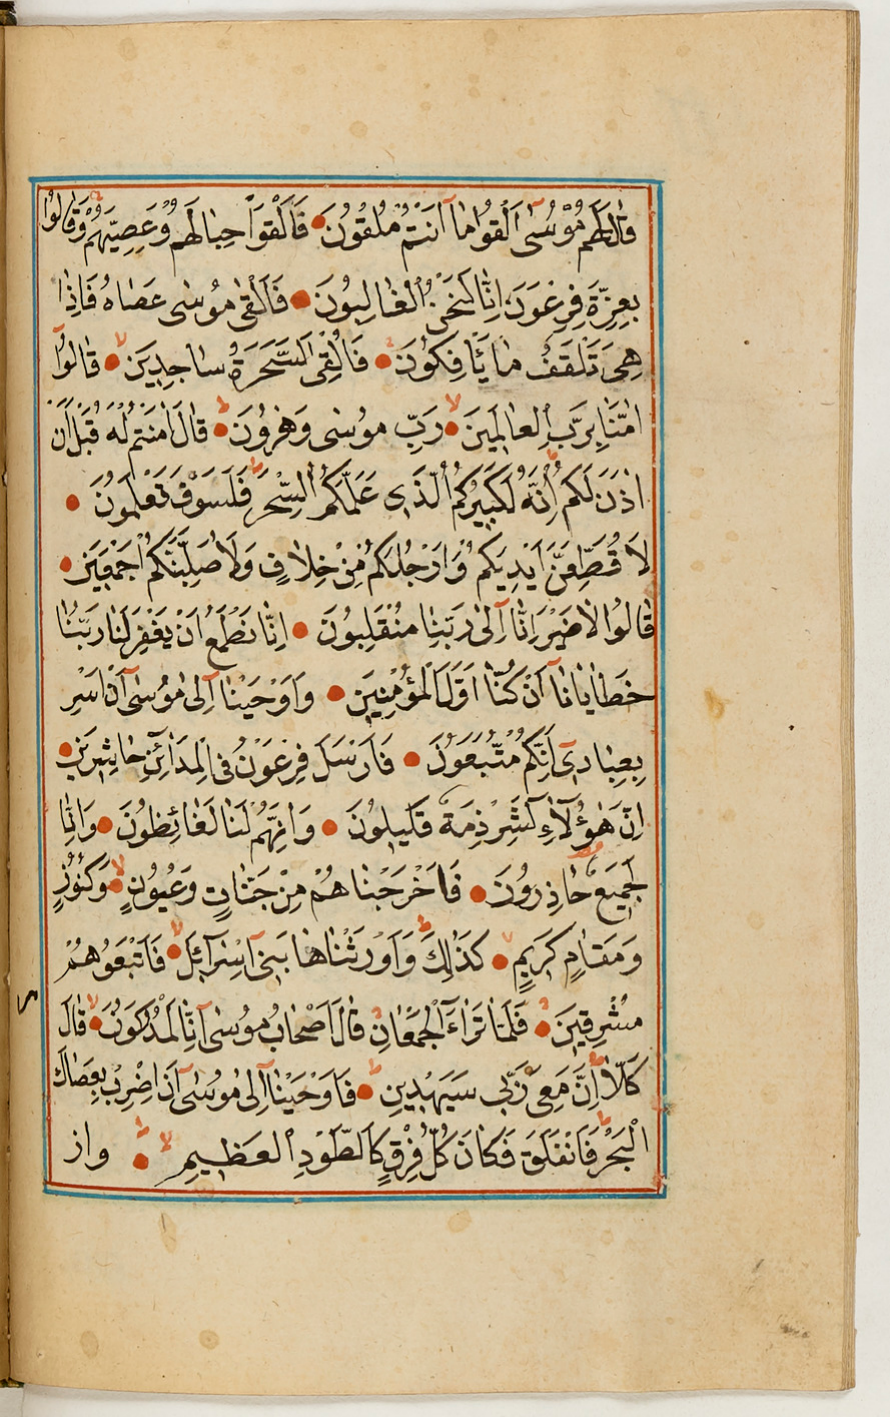 قَالَ لَهُمْ مُوسٰى اَلْقُوا مَا اَنْتُمْ مُلْقُونَ فَاَلْقَوْا حِبَالَهُمْ وَعِصِيَّهُمْ وَقَالُوا
بِعِزَّةِ فِرْعَوْنَ اِنَّا لَنَحْنُ الْغَالِبُونَ فَاَلْقٰى مُوسٰى عَصَاهُ فَاِذَا
هِىَ تَلْقَفُ مَا يَأْفِكُونَ فَاُلْقِىَ السَّحَرَةُ سَاجِدِينَ قَالُوا
اٰمَنَّا بِرَبِّ الْعَالَمِينَ رَبِّ مُوسٰى وَهٰرُونَ قَالَ اٰمَنْتُمْ لَهُ قَبْلَ اَنْ
اٰذَنَ لَكُمْ اِنَّهُ لَكَبِيرُكُمُ الَّذِى عَلَّمَكُمُ السِّحْرَ فَلَسَوْفَ تَعْلَمُونَ
لَاُقَطِّعَنَّ اَيْدِيَكُمْ وَاَرْجُلَكُمْ مِنْ خِلَافٍ وَلَاُصَلِّبَنَّكُمْ اَجْمَعِينَ
قَالُوا لَا ضَيْرَ اِنَّا اِلٰى رَبِّنَا مُنْقَلِبُونَ اِنَّا نَطْمَعُ اَنْ يَغْفِرَ لَنَا رَبُّنَا
خَطَايَانَا اَنْ كُنَّا اَوَّلَ الْمُؤْمِنِينَ وَاَوْحَيْنَا اِلٰى مُوسٰى اَنْ اَسْرِ
بِعِبَادِى اِنَّكُمْ مُتَّبَعُونَ فَاَرْسَلَ فِرْعَوْنُ فِى الْمَدَائِنِ حَاشِرِينَ
اِنَّ هٰؤُلَاءِ لَشِرْذِمَةٌ قَلِيلُونَ وَاِنَّهُمْ لَنَا لَغَائِظُونَ وَاِنَّا
لَجَمِيعٌ حَاذِرُونَ فَاَخْرَجْنَاهُمْ مِنْ جَنَّاتٍ وَعُيُونٍ وَكُنُوزٍ
وَمَقَامٍ كَرِيمٍ كَذٰلِكَ وَاَوْرَثْنَاهَا بَنِى اِسْرَائِلَ فَاَتْبَعُوهُمْ
مُشْرِقِينَ فَلَمَّا تَرَاءَ الْجَمْعَانِ قَالَ اَصْحَابُ مُوسٰى اِنَّا لَمُدْرَكُونَ قَالَ
كَلَّا اِنَّ مَعِىَ رَبِّى سَيَهْدِينِ فَاَوْحَيْنَا اِلٰى مُوسٰى اَنِ اضْرِبْ بِعَصَاكَ
الْبَحْرَ فَانْفَلَقَ فَكَانَ كُلُّ فِرْقٍ كَالطَّوْدِ الْعَظِيمِ واز